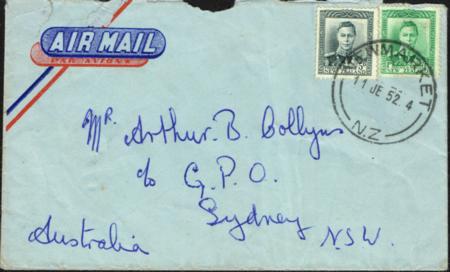 AIR MAIL
PAR AVION
NEWMARKET
11 JE 52.4
N.Z
Mr. Arthur. B. Collyns
c/o G.P.O.
Sydney
Australia N.S.W.